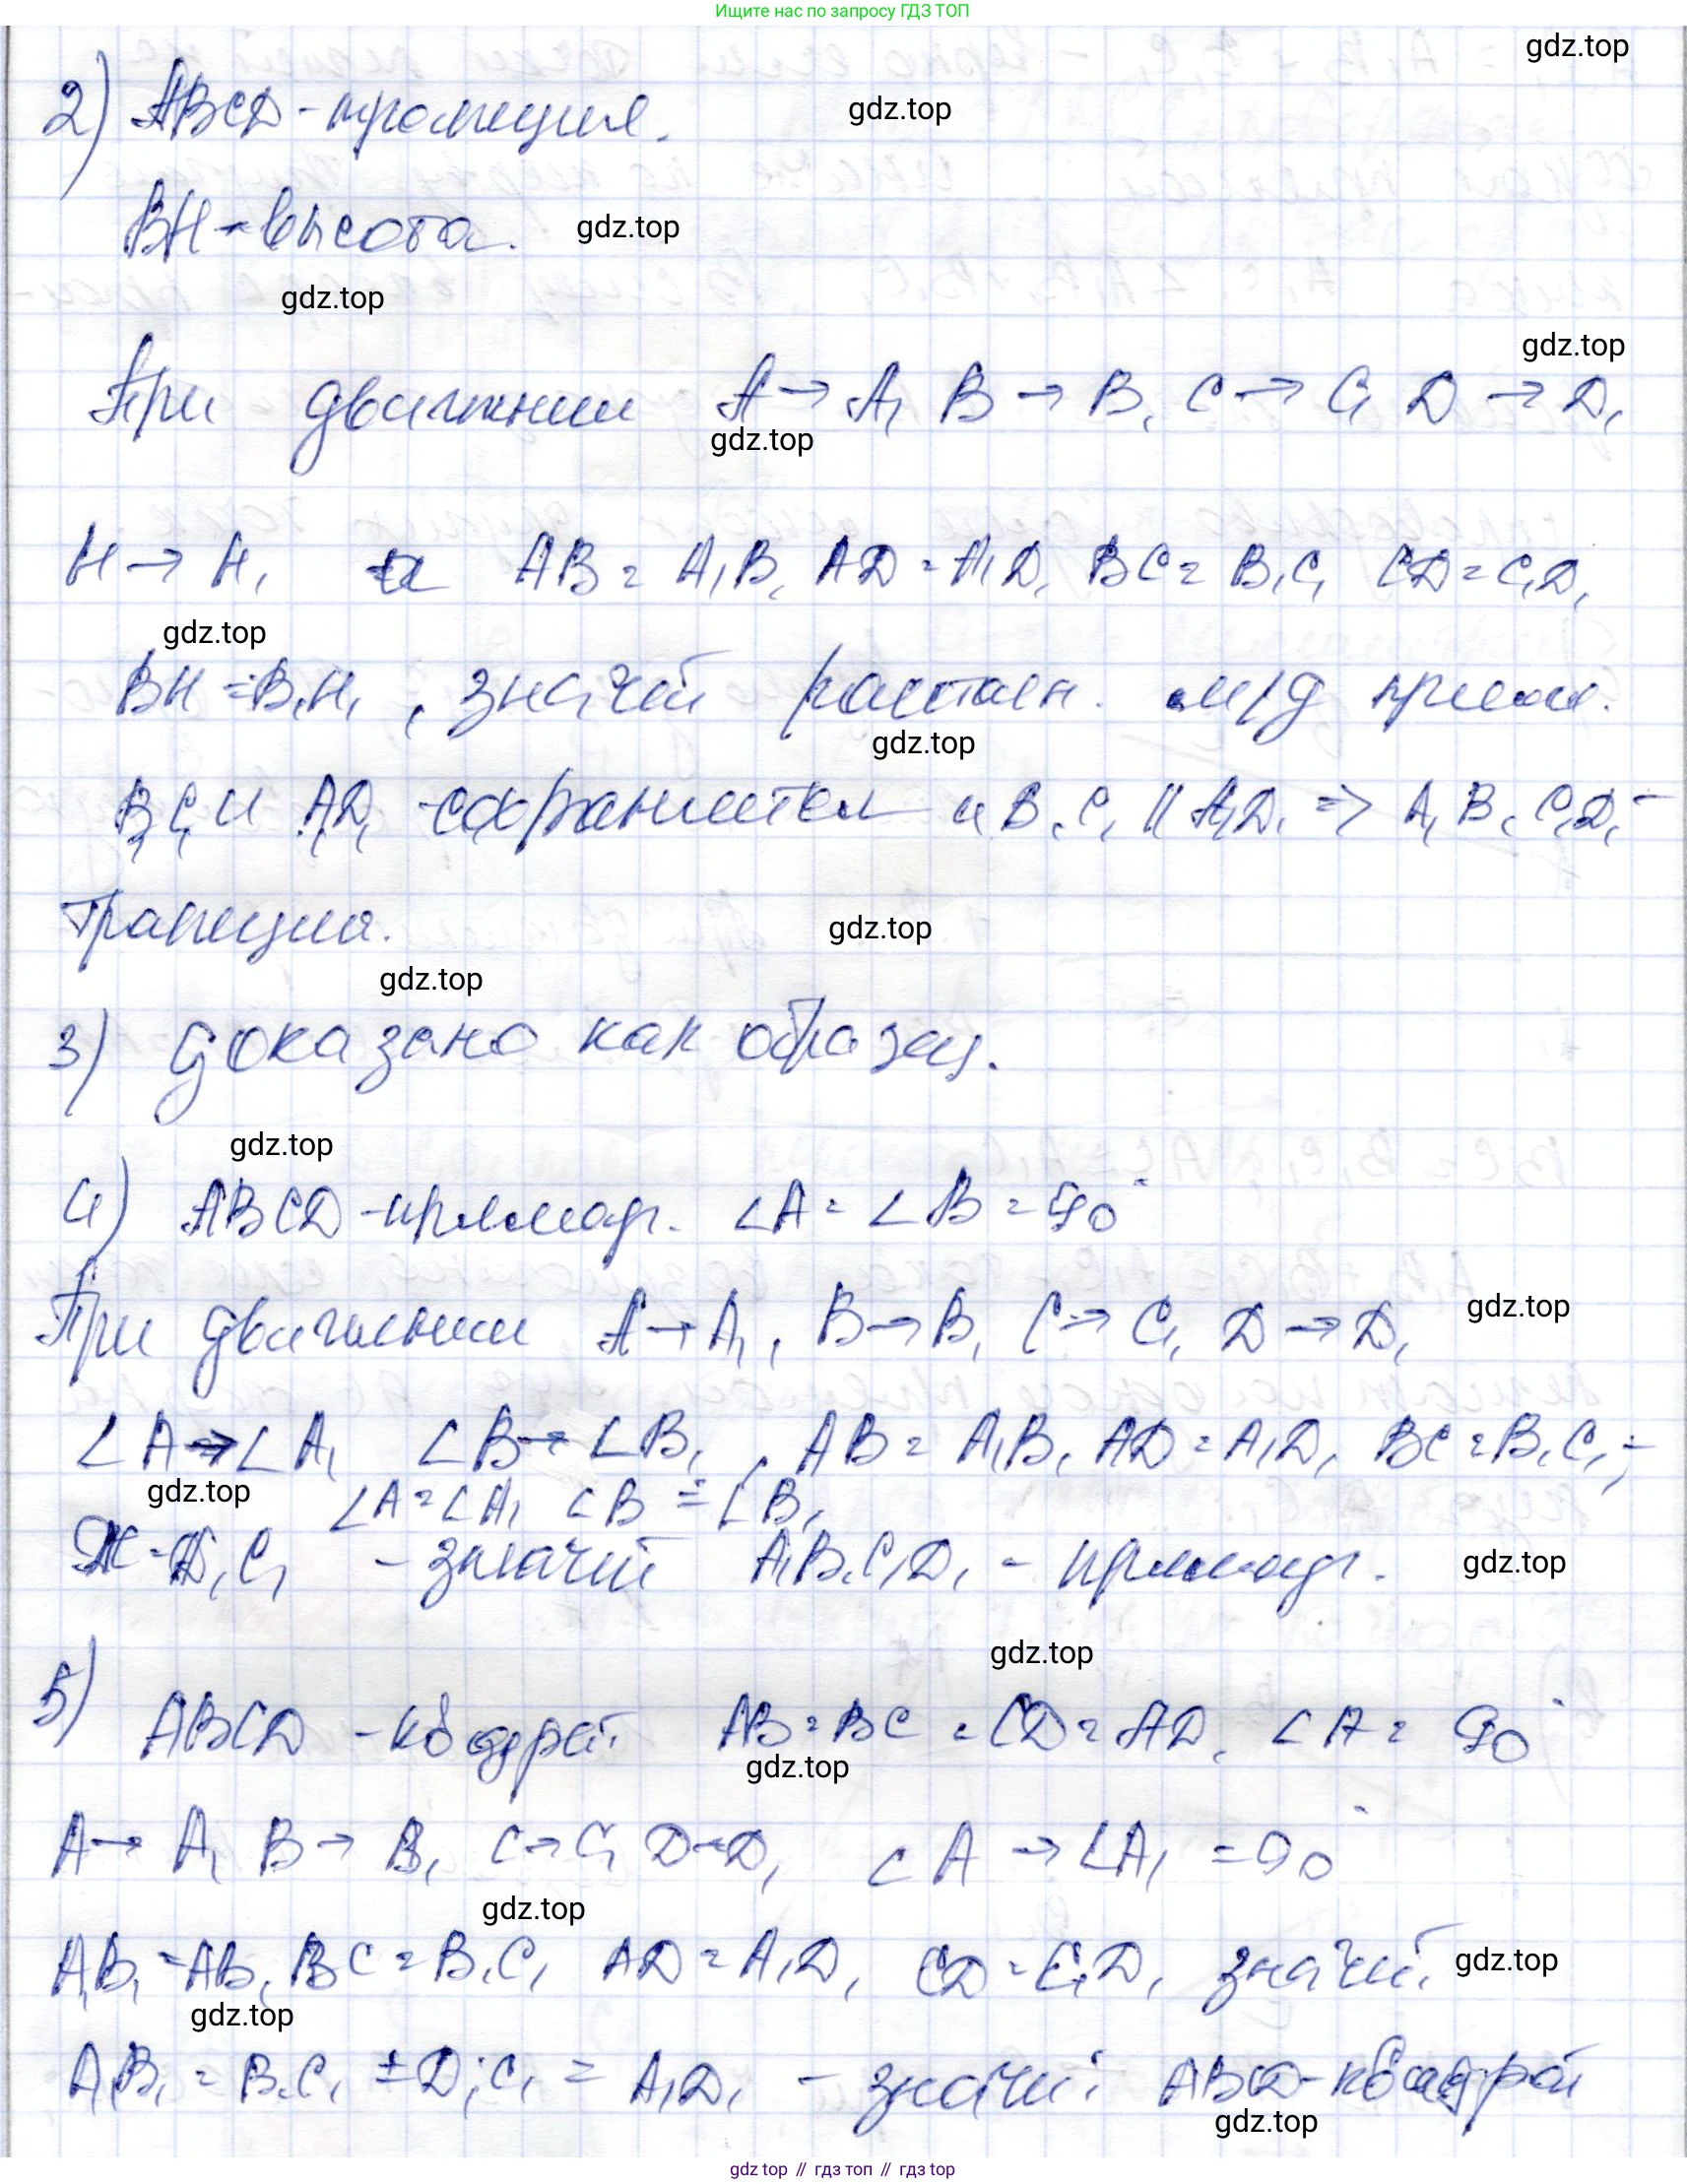 Ищите нас по запросу ГДЗ ТОП
gdz.top
2) ABCD - трапеция.
gdz.top
BH - высота.
gdz.top
gdz.top
gdz.top
При движении A → A₁ B → B₁ C → C₁ D → D₁
gdz.top
H → H₁ а AB = A₁B₁ AD = A₁D₁ BC = B₁C₁ CD = C₁D₁
gdz.top
BH = B₁H₁, значит расстоян. м/д прям.
gdz.top
B₁C₁ и A₁D₁ - сохраняется и B₁C₁ || A₁D₁ => A₁B₁C₁D₁ -
трапеция.
gdz.top
gdz.top
3) доказано как образец.
gdz.top
4) ABCD - прямоуг. ∠A = ∠B = 90°
gdz.top
При движении A → A₁, B → B₁ C → C₁ D → D₁
∠A → ∠A₁ ∠B → ∠B₁, AB = A₁B₁ AD = A₁D₁ BC = B₁C₁;
gdz.top
∠A = ∠A₁ ∠B = ∠B₁
DC = D₁C₁ - значит A₁B₁C₁D₁ - прямоуг.
gdz.top
gdz.top
5) ABCD - квадрат AB = BC = CD = AD, ∠A = 90°
gdz.top
A → A₁ B → B₁ C → C₁ D → D₁ ∠A → ∠A₁ = 90°
gdz.top
A₁B₁ = AB, BC = B₁C₁ AD = A₁D₁ CD = C₁D₁ значит
gdz.top
gdz.top
A₁B₁ = B₁C₁ = D₁C₁ = A₁D₁ - значит ABCD - квадрат
gdz.top
gdz top // гдз топ // гдз top